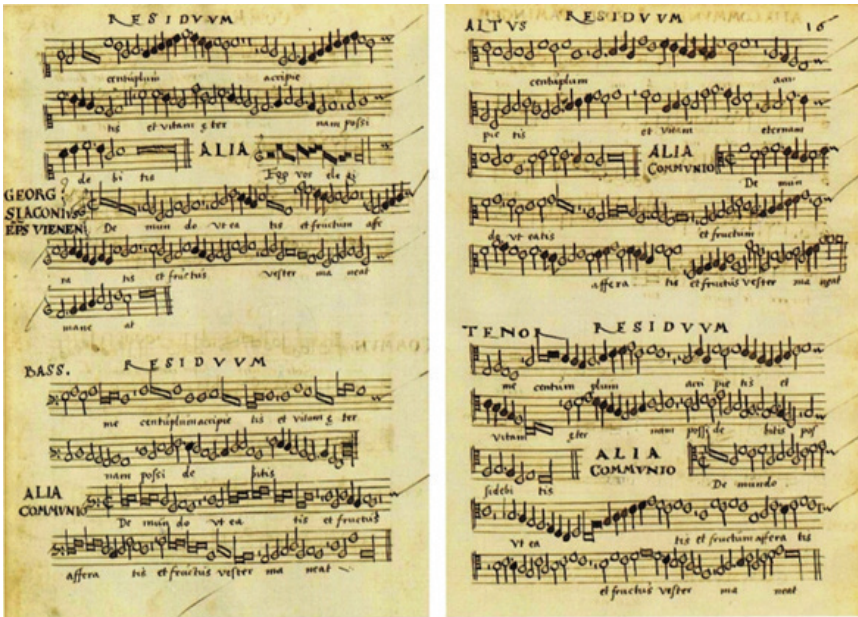 RESIDVVM
centuplum accipie
tis et vitam eter nam possi
de bi tis ALIA Ego vos ele gi
GEORG
SLACONIVS
EPS VIENEN
De mun do vt ea tis et fructum affe
ra tis et fructus vester ma neat
mane at
BASS. RESIDVVM
me centuplum accipie tis et vitam e ter
nam possi de bitis
ALIA
COMMVNIO
De mun do vt ea tis et fructus
affera tis et fructus vester ma neat
ALTVS RESIDVVM 16
centuplum acci
pie tis et vitam eternam
ALIA
COMMVNIO
De mun
do vt eatis et fructum
affera tis et fructus vester ma neat
TENOR RESIDVVM
me centum plum acci pie tis et
vitam eter nam possi de bitis pos
sidebi tis
ALIA
COMMVNIO
De mundo
vt ea tis et fructum affera tis
et fructus vester ma neat